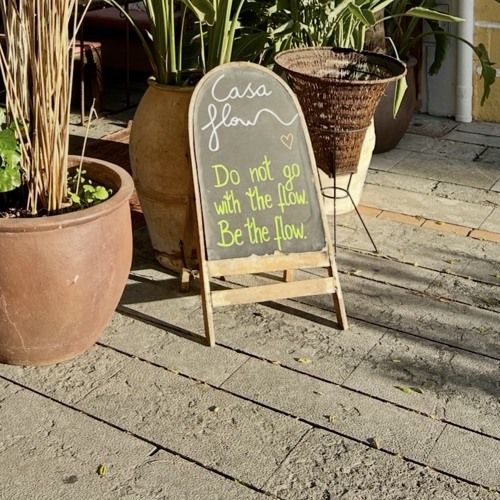 Casa
flow
Do not go
with the flow.
Be the flow.